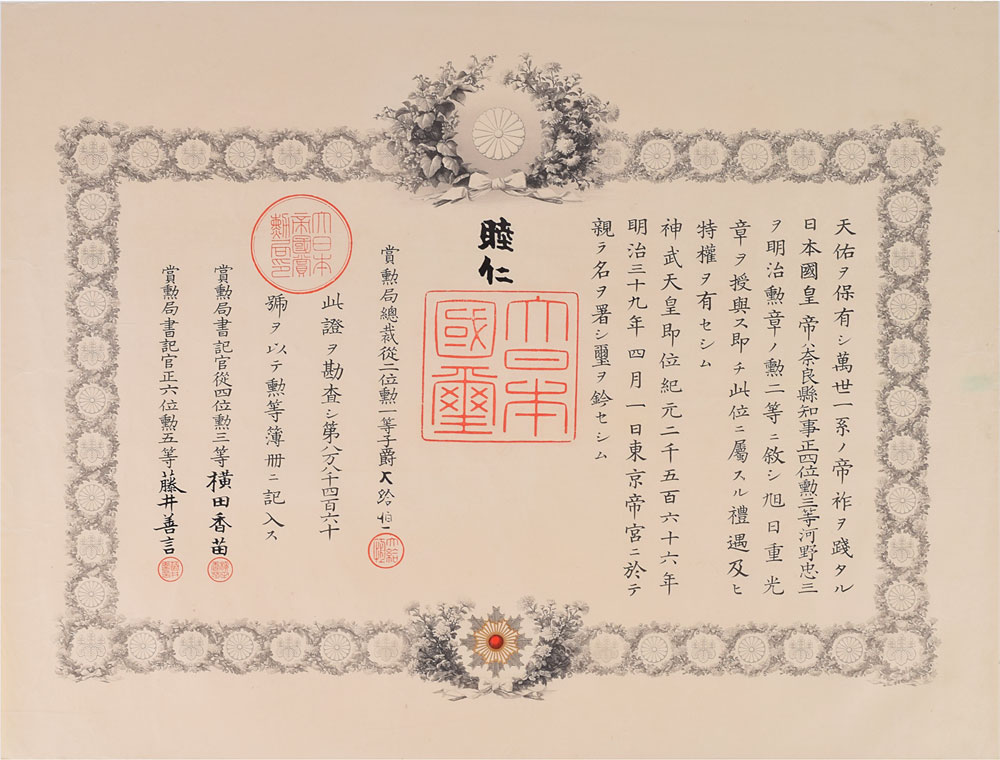 天佑ヲ保有シ萬世一系ノ帝祚ヲ踐タル
日本國皇帝ハ奈良縣知事正四位勲三等河野忠三
ヲ明治勲章ノ勲二等ニ敘シ旭日重光
章ヲ授與ス即チ此位ニ屬スル禮遇及ヒ
特權ヲ有セシム
神武天皇即位紀元二千五百六十六年
明治三十九年四月一日東京帝宮ニ於テ
親ラ名ヲ署シ璽ヲ鈐セシム
睦仁
大日本國璽
賞勲局總裁從二位勲一等子爵大給恒
此證ヲ勘査シ第八万八千四百六十
號ヲ以テ勲等簿册ニ記入ス
大日本帝國賞勲局印
賞勲局書記官從四位勲三等横田香苗
賞勲局書記官正六位勲五等藤井善言